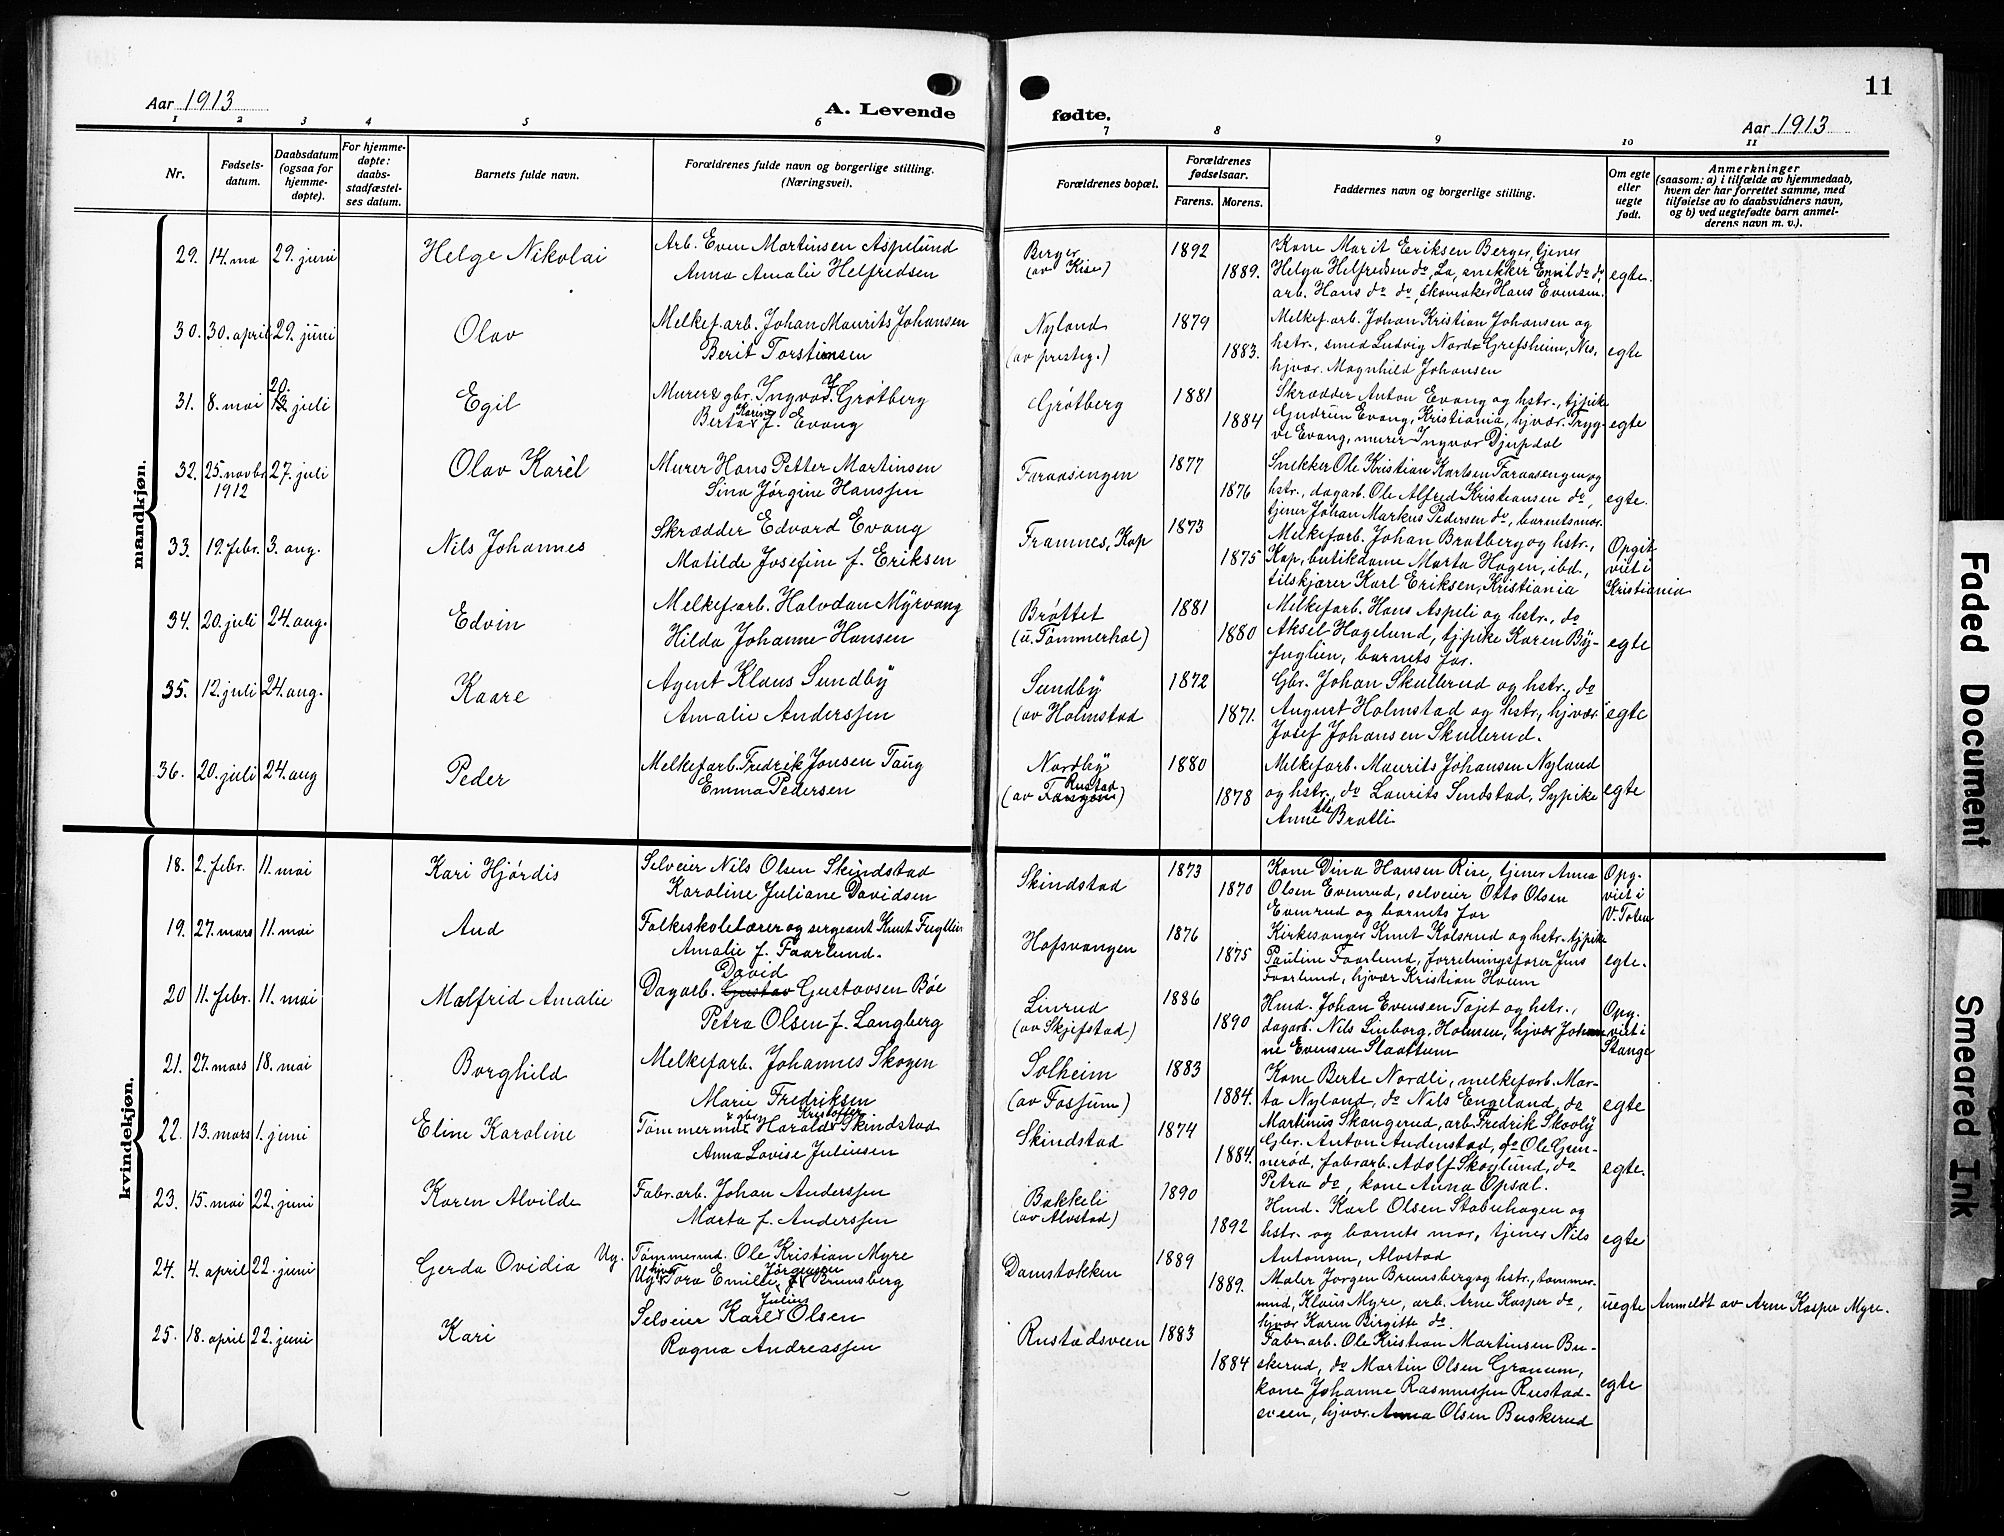 11
Aar 1913
A. Levende
fødte.
Aar 1913
1 2 3 4 5 6 7 8 9 10 11
Nr.
Fødsels-
datum.
Daabsdatum
(ogsaa for
hjemme-
døpte).
For hjemme-
døpte:
daabs-
stadfæstel-
ses datum.
Barnets fulde navn.
Forældrenes fulde navn og borgerlige stilling.
(Næringsvei).
Forældrenes bopæl.
Forældrenes
fødselsaar.
Farens. Morens.
Faddernes navn og borgerlige stilling.
Om egte
eller
uegte
født.
Anmerkninger
(saasom: a) i tilfælde av hjemmedaab,
hvem der har forrettet samme, med
tilføielse av to daabsvidners navn,
og b) ved uegtefødte barn anmel-
derens navn m. v.).
mandkjøn.
29. 14. ma 29. juni Helge Nikolai
Arb. Even Martinsen Aspelund
Anna Amalie Helfredsen
Berger
(av Kise)
1892
1889.
Kone Marit Eriksen Berger, tjener
Helga Helfredsen do, La, snekker Emil do do,
arb. Hans do do, skomaker Hans Evensen.
egte.
30. 30. april 29. juni Olav
Melkef.arb. Johan Maurits Johansen
Berit Torstensen
Nyland
(av presteg.)
1879
1883.
Melkef.arb. Johan Kristian Johansen og
hstr., smed Ludvig Nords Grefsheim, Nes,
hjvær. Magnhild Johansen
egte
31. 8. mai 20. 13 juli Egil
Murer & gbr. Ingvar K. Grøtberg
Berta Karine f. Evang
Grøtberg
1881
1884
Skrædder Anton Evang og hstr., tjpike
Gudrun Evang, Kristiania, hjvær. Tryg-
ve Evang, murer Ingvar Djupdal
egte
32. 25. novbr. 1912 27. juli Olav Karèl
Murer Hans Petter Martinsen
Sina Jørgine Hanssen
Faraasengen
1877
1876
Snekker Ole Kristian Karlsen Faraasengen og
hstr., dagarb. Ole Alfred Kristiansen do,
tjener Johan Markus Pedersen do, barnets mor.
egte.
33. 19. febr. 3. aug. Nils Johannes
Skrædder Edvard Evang
Matilde Josefine f. Eriksen
Framnes, Kap
1873
1875
Melkefarb. Johan Bratberg og hstr.,
Kap, butikdame Marta Hagen, ibd.,
tilskjærer Karl Eriksen, Kristiania
Opgit
viet i
Kristiania
34. 20. juli 24. aug. Edvin
Melkef.arb. Halvdan Myrvang
Hilda Johanne Hansen
Brøttet
(u. Tømmerhol)
1881
1880
Melkefarb. Hans Aspeli og hstr., do
Aksel Hagelund, tjpike Karen By-
fuglien, barnets far.
egte
35. 12. juli 24. aug. Kaare
Agent Klaus Sundby
Amalie Anderssen
Sundby
(av Holmstad
1872
1871.
Gbr. Johan Skullerud og hstr., do
August Holmstad og hstr., hjvær.
Josef Johansen Skullerud.
egte
36. 20. juli 24. aug Peder
Melkefarb. Fredrik Jonsen Taug
Emma Pedersen
Nordby
(av Rustad)
1880
1878
Melkefarb. Maurits Johansen Nyland
og hstr., do Laurits Sundstad, Sypike
Annette Bratli
egte
kvindekjøn.
18. 2. febr. 11. mai Kari Hjørdis
Selveier Nils Olsen Skindstad
Karoline Juliane Davidsen
Skindstad
1873
1870
Kone Dina Hansen Rise, tjener Anna
Olsen Evenrud, selveier Otto Olsen
Evenrud og barnets far
Opg.
viet i
V. Toten
19. 27. mars 11. mai Aud
Folkeskolelærer og sergeant Knut Fugllien
Amalie f. Faarlund.
Hofsvangen
1876
1875
Kirkesanger Knut Kolsrud og hstr. tjpike
Pauline Faarlund, forretningsfører Jens
Faarlund, hjvær Kristian Hveem
egte.
20 11. febr. 11. mai Malfrid Amalie
Dagarb. Gustav David Gustavsen Bøe
Petra Olsen f. Langberg
Linrud
(av Skjefstad)
1886
1890
Hmd. Johan Evensen Tøjet og hstr.,
dagarb. Nils Linborg, Holmen, hjvær Johan-
ne Evensen Slaattum
Opg.
viet i
Stange
21. 27. mars 18. mai Borghild
Melkefarb. Johannes Skogen
Marie Fredriksen
Solheim
(av Fossum)
1883
1884.
Kone Berte Nordli, melkefarb. Mar-
ta Nyland, do Nils Engeland, do
Martinus Skangerud, arb. Fredrik Skoly
egte
22. 13. mars 1. juni Eline Karoline
Tømmermd. & gbr. Harald Kristoffer Skindstad
Anna Lovise Juliussen
Skindstad
1874
1884.
Gbr. Anton Audenstad, do Ole Gun-
nerød, fabr.arb. Adolf Skoglund, do
Petra do, kone Anna Opsal.
egte.
23. 15. mai 22. juni Karen Alvilde
Fabr.arb. Johan Anderssen
Marta f. Anderssen
Bakkeli
(av Alvstad)
1890
1892
Hmd. Karl Olsen Stabuhagen og
hstr. og barnets mor, tjener Nils
Antonsen, Alvstad
egte
24. 4. april 22. juni Gerda Ovidia
Ug. Tømmermd. Ole Kristian Myre
Ug. tjener Tora Emilie Jørgensen Brunsberg
Damstokken
1889
1889.
Maler Jørgen Brunsberg og hstr., tømmer-
md, Klaus Myre, arb. Arne Kasper do,
hjvær Karen Birgitte do.
uegte
Anmeldt av Arne Kasper Myre.
25. 18. april 22. juni Kari
Selveier Karl Julius Olsen
Ragna Andreassen
Rustadsveen
1883
1884
Fabr.arb. Ole Kristian Martinsen Bu-
skerud, do Martin Olsen Granum,
kone Johanne Rasmussen Rustad-
sveen, hjvær. Anna Olsen Buskerud
egte
Faded Document
Smeared Ink